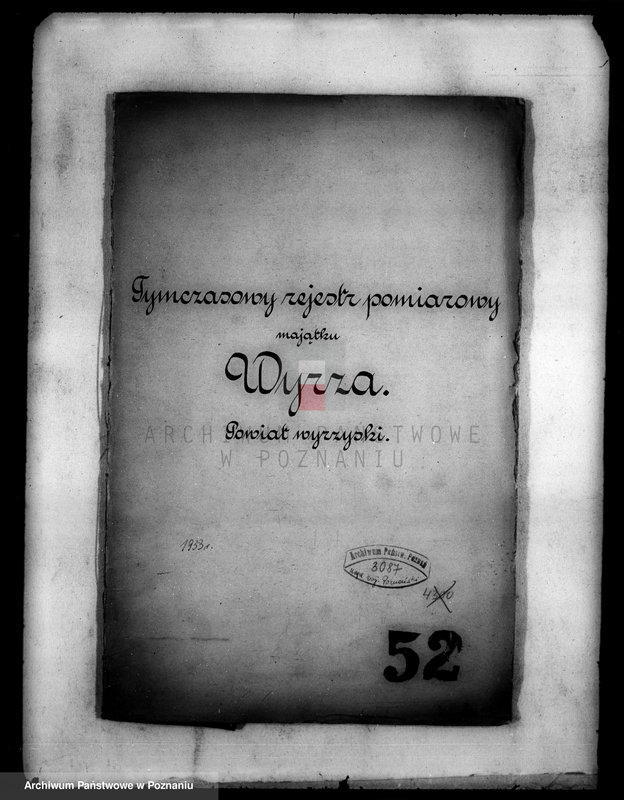 Tymczasowy rejestr pomiarowy
majątku
Wyrza.
Powiat wyrzyski.
ARCHIWUM PAŃSTWOWE
W POZNANIU
1933 r.
Archiwum Państw. Poznań
3087
Urząd Woj. Poznański
4300
52
Archiwum Państwowe w Poznaniu